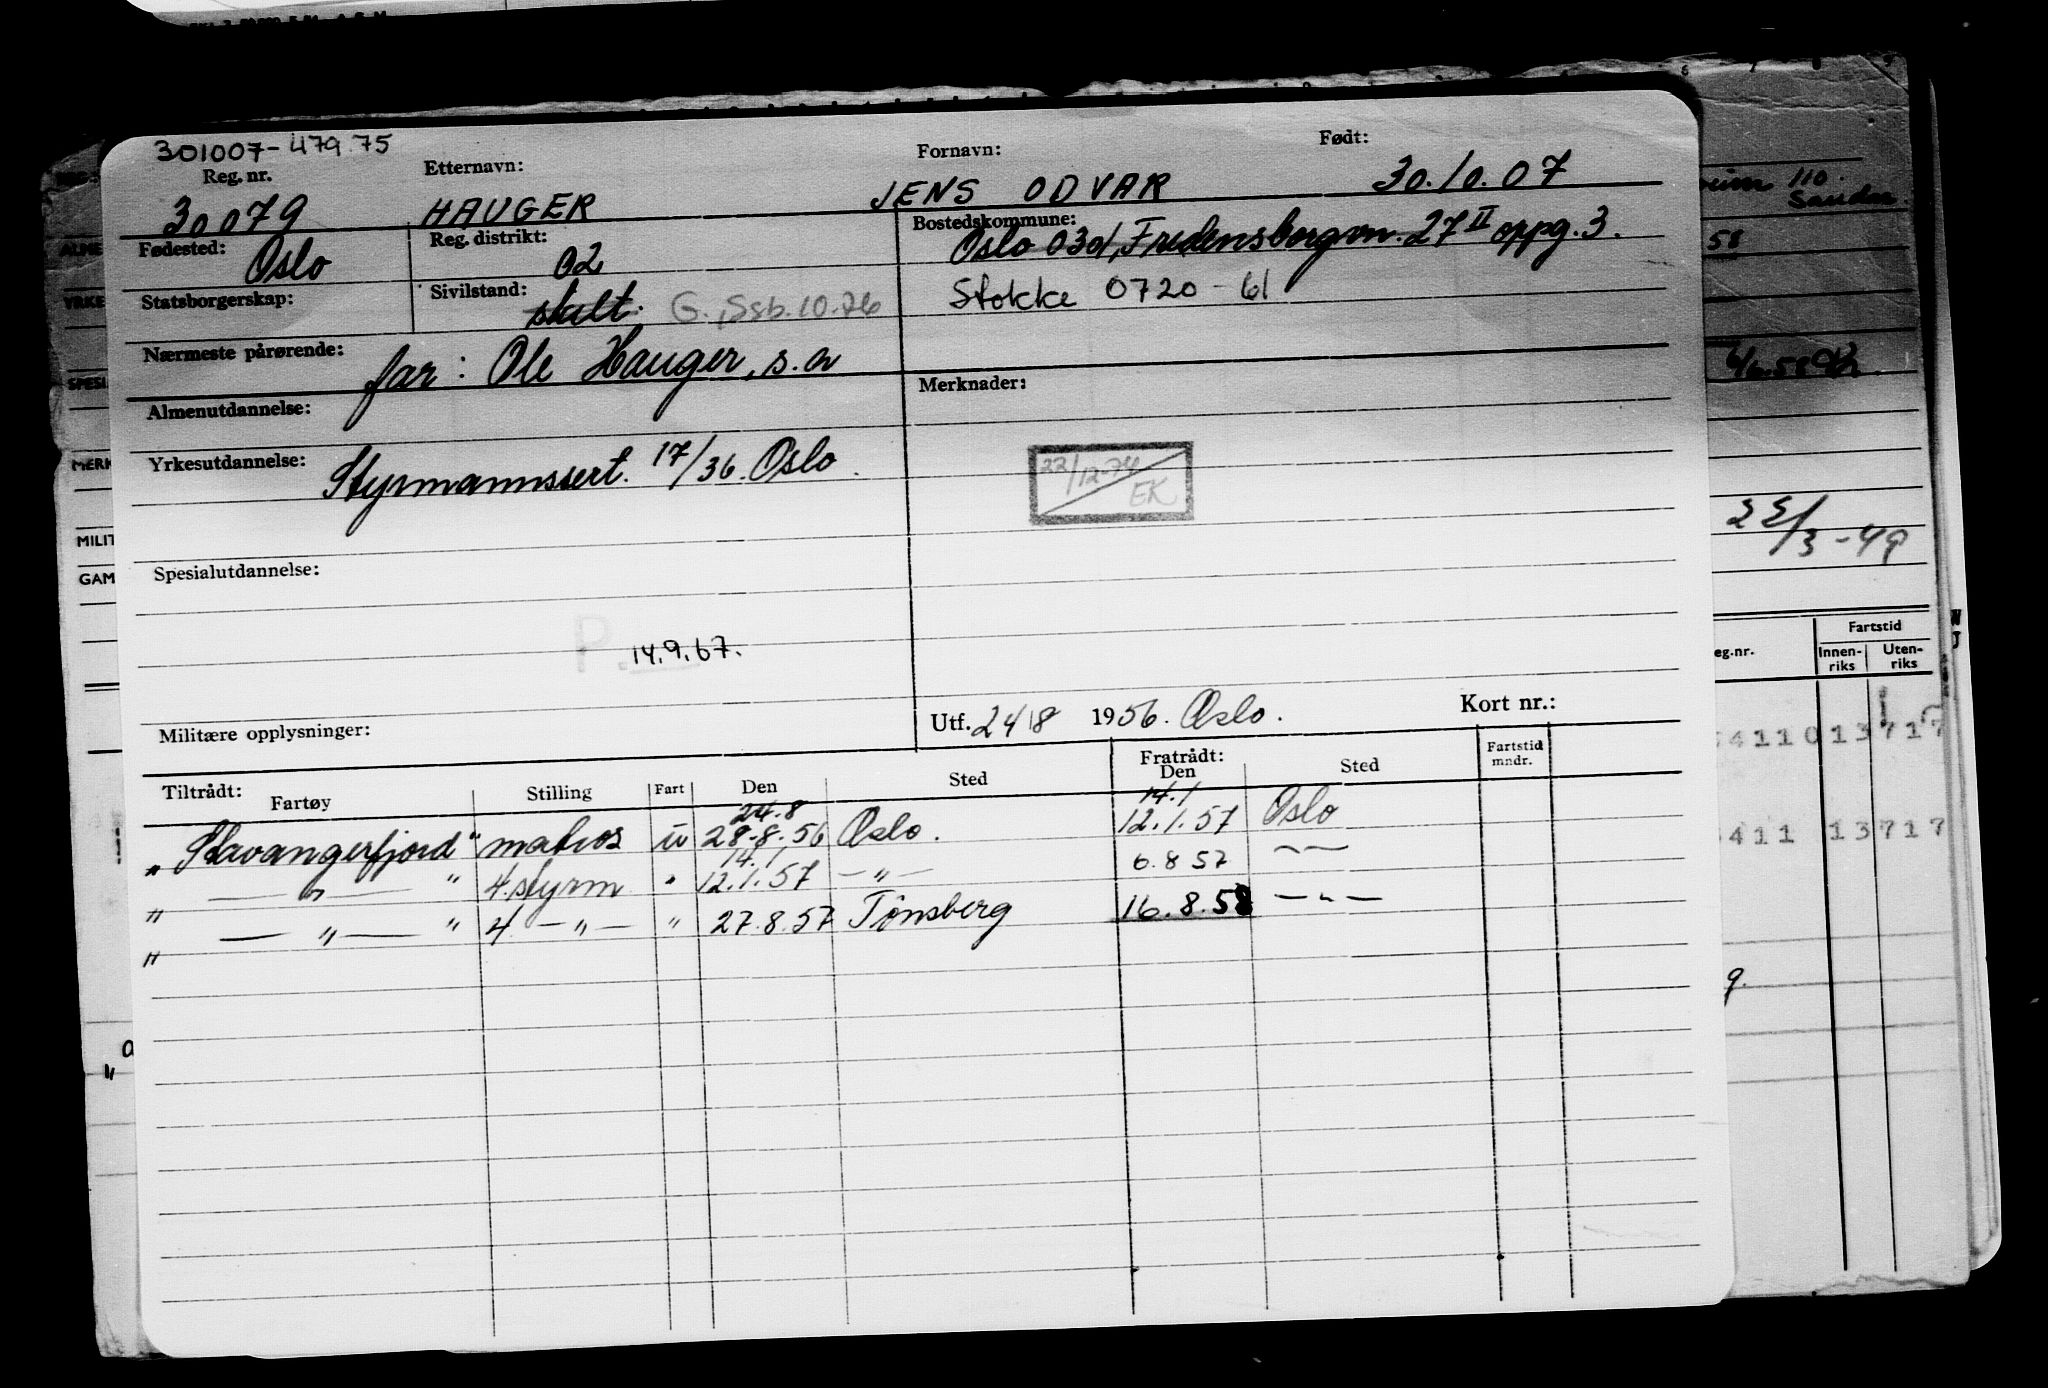 301007-479.75
Reg. nr. Etternavn: Fornavn: Født:
30079 HAUGER JENS ODVAR 30.10.07
Fødested: Oslo Reg. distrikt: 02 Bostedskommune: Oslo 03d, Fredensborgvn. 27 II oppg. 3.
Statsborgerskap: Sivilstand: skilt. G., Ssb. 10.76 Stokke 0720-61
Nærmeste pårørende: far: Ole Hauger, s.a
Almenutdannelse: Merknader:
Yrkesutdannelse: Styrmannssert. 17/36. Oslo.
22/12-74 EK
Spesialutdannelse:
P. 14.9.67.
Militære opplysninger: Utf. 24/8 1956. Oslo. Kort nr.:
Tiltrådt: Fratrådt: Fartstid mndr.
Fartøy Stilling Fart Den Sted Den Sted
24.8 14.1
"Stavangerfjord" matros u 28.8.56 Oslo. 12.1.57 Oslo
14.1
" — " — " 4. styrm " 12.1.57 — " — 6.8 57 — " —
" — " — " 4 — " — " 27.8.57 Tønsberg 16.8.58 — " —
110
Sandar.
58
YRKE
SPESI
MERK
MILIT
GAM
3-49
eg.nr. Fartstid
Innen-riks Uten-riks
411013717
411 13717